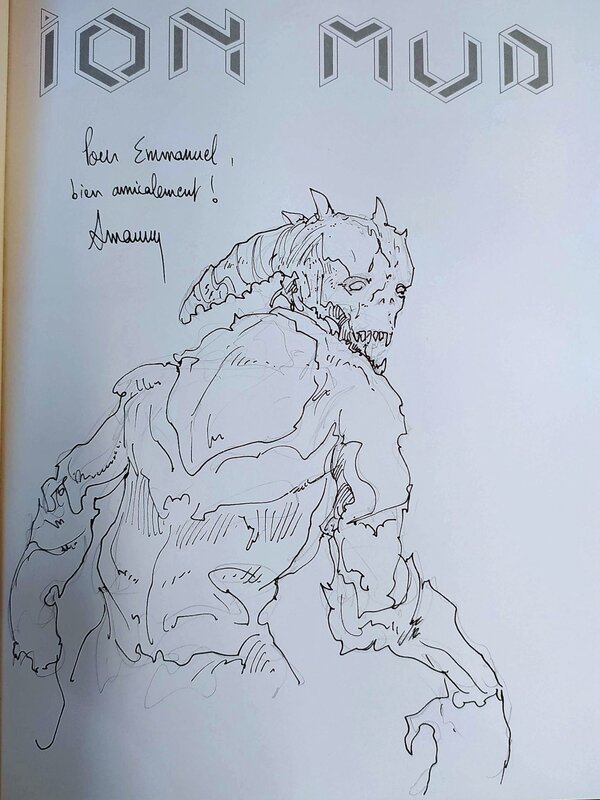 ION MUD
Pour Emmanuel,
bien amicalement !
Amaury